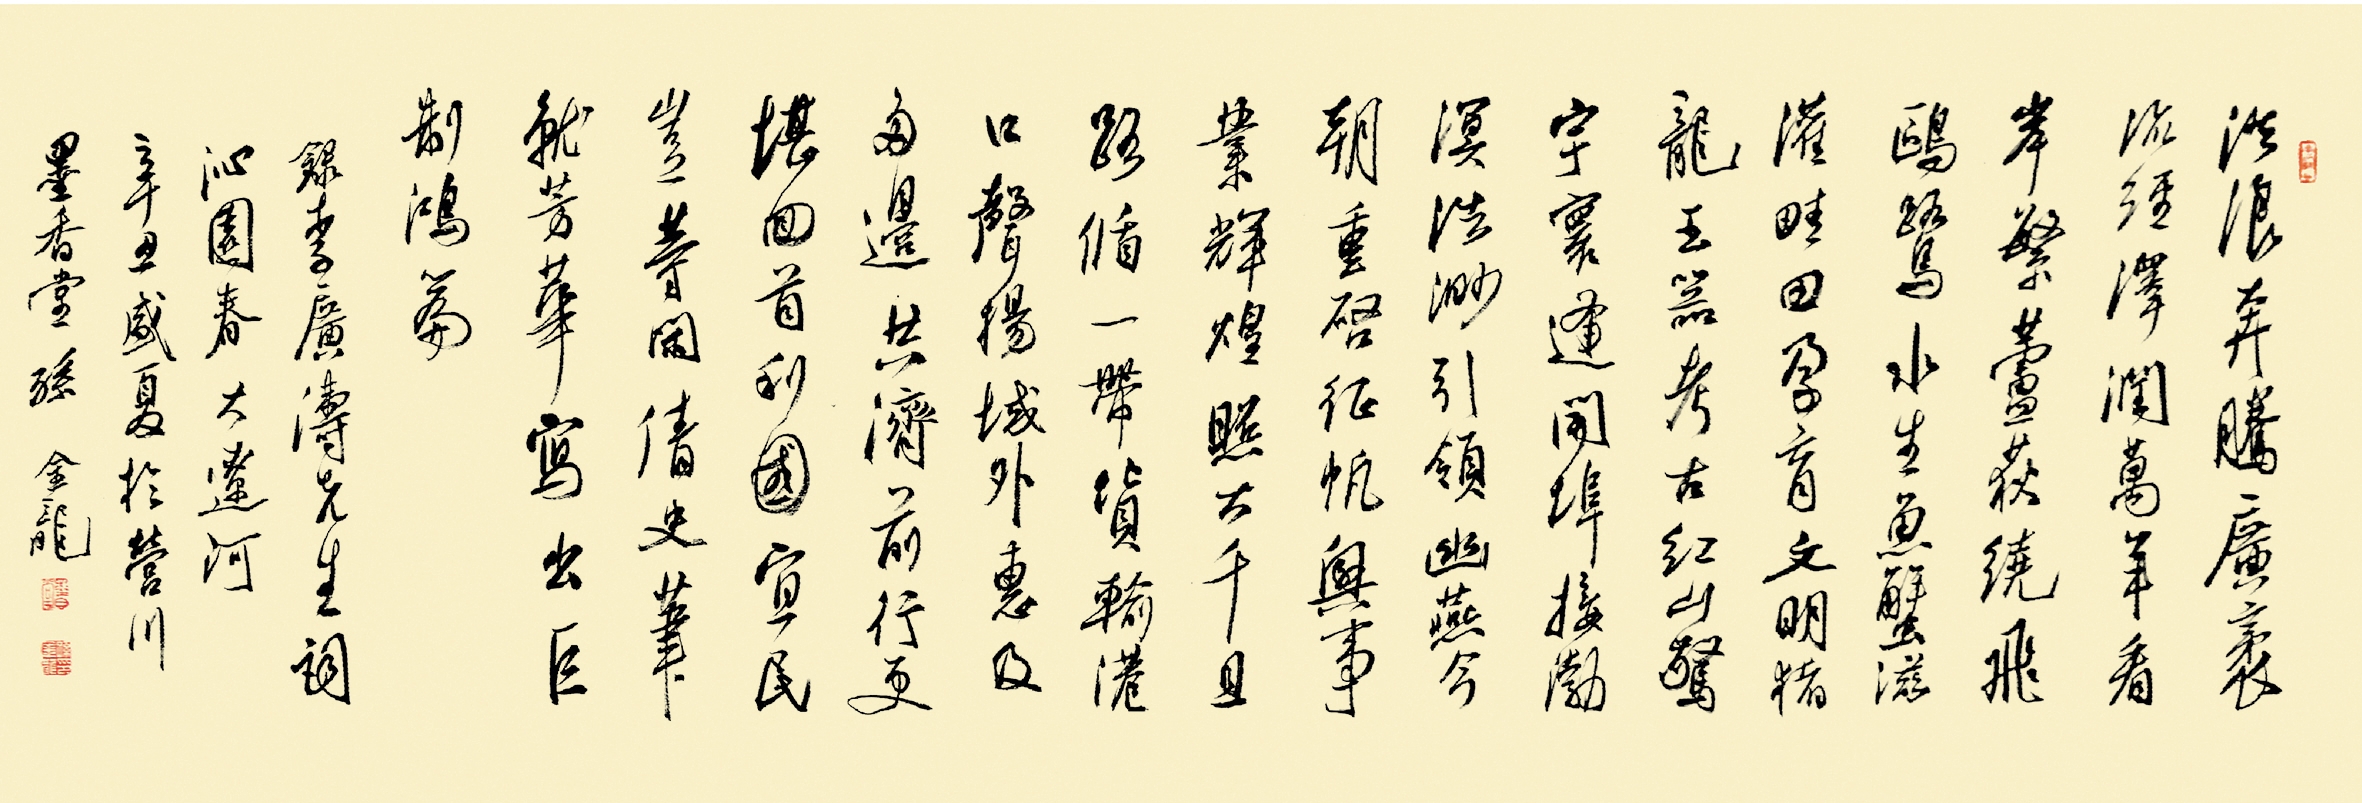 洪浪奔騰廣袤
流經澤潤萬年看
岸繁蘆荻繞飛
鷗鷺水生魚蟹滋
灌畦田孕育文明猪
龍玉器考古紅山驚
宇寰逢開埠接渤
溟浩渺引領幽燕今
朝重啓征帆興事
業輝煌照大千且
路循一帶貨輸港
口聲揚域外惠及
多邊共濟前行更
堪回首利國宜民
豈等閑倩史筆
就芳華寫出巨
制鴻篇
錄李廣濤先生詞
沁園春大遼河
辛丑盛夏於營川
墨香堂孫金龍